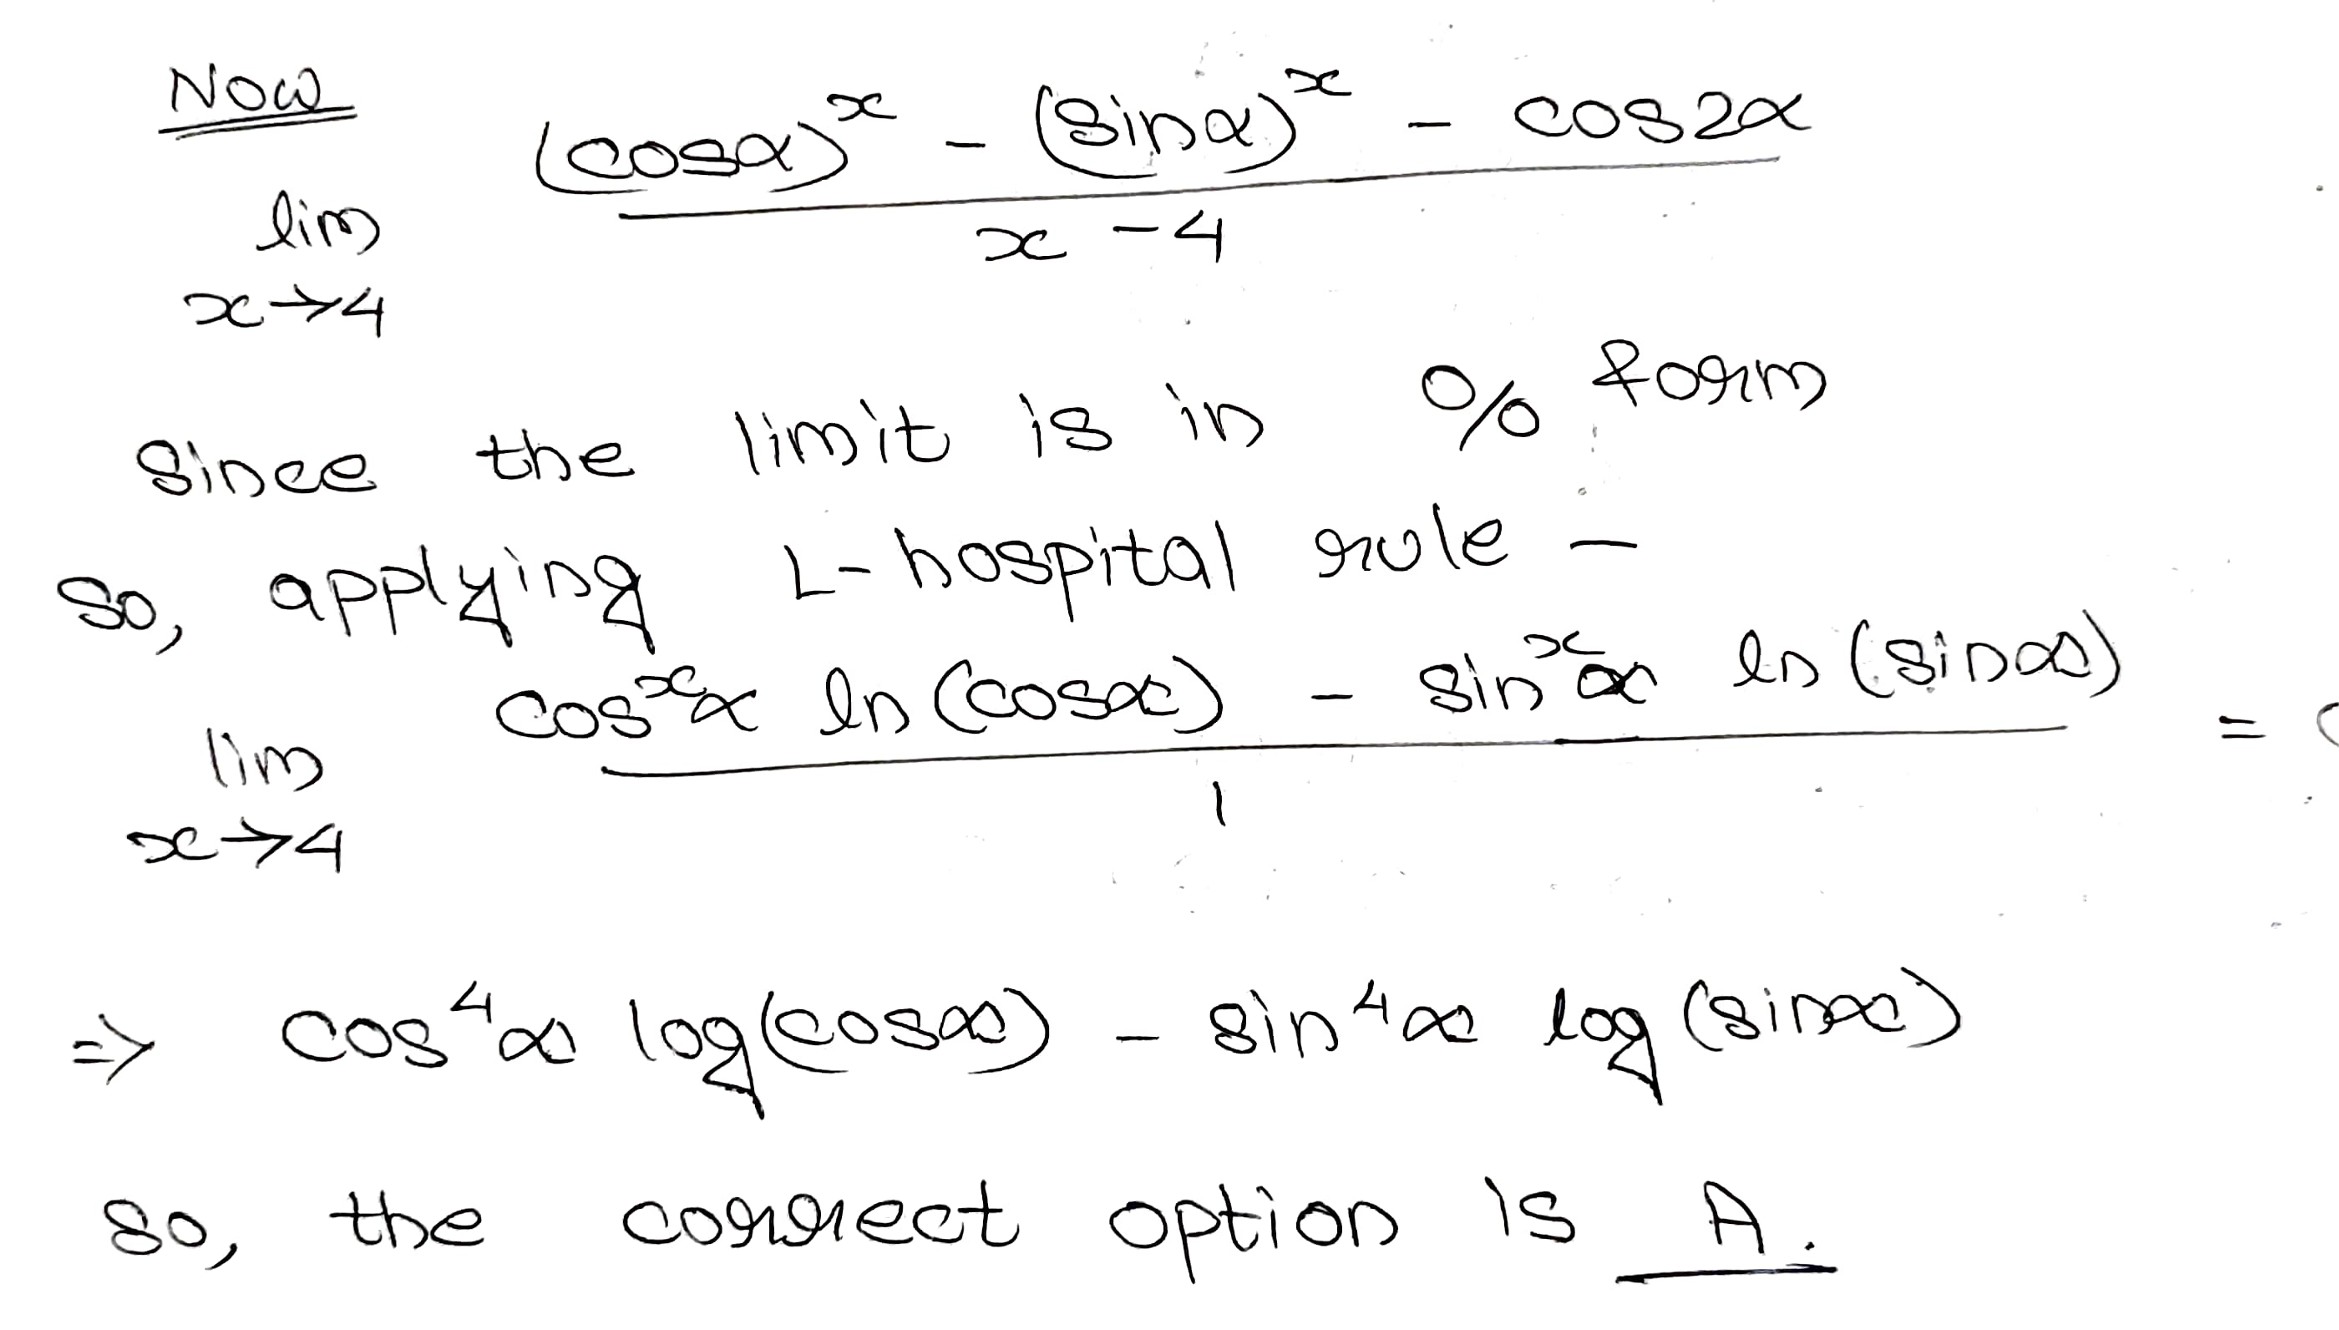 Now
lim x→4 ((cosα)^x - (sinα)^x - cos2α) / (x - 4)
Since the limit is in 0/0 form
So, applying L-hospital rule -
lim x→4 (cos^x α ln (cosα) - sin^x α ln (sinα)) / 1 =
⇒ cos^4 α log(cosα) - sin^4 α log (sinα)
So, the correct option is A.